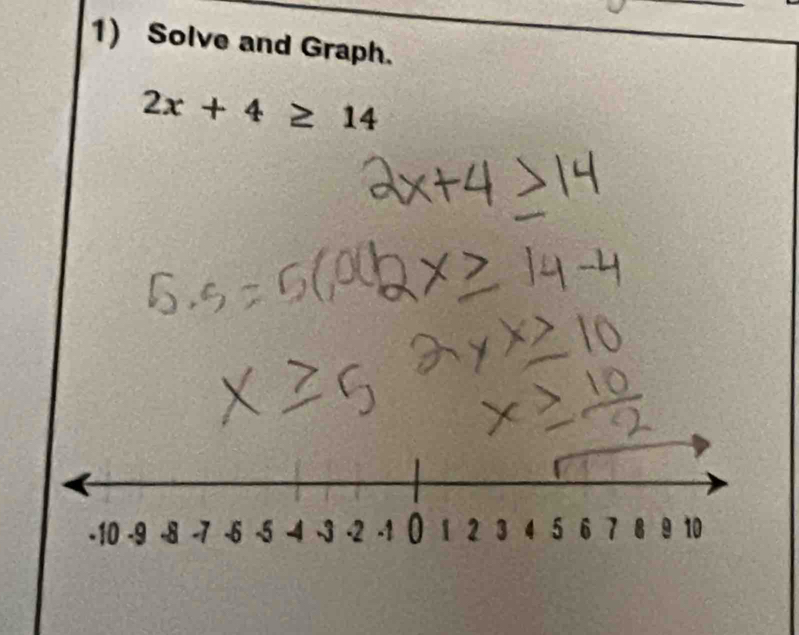 1) Solve and Graph.
2x + 4 ≥ 14
2x+4 ≥ 14
5.5 = 5 2x ≥ 14-4
x ≥ 10
x ≥ 5
x ≥ 10/2
-10 -9 -8 -7 -6 -5 -4 -3 -2 -1 0 1 2 3 4 5 6 7 8 9 10